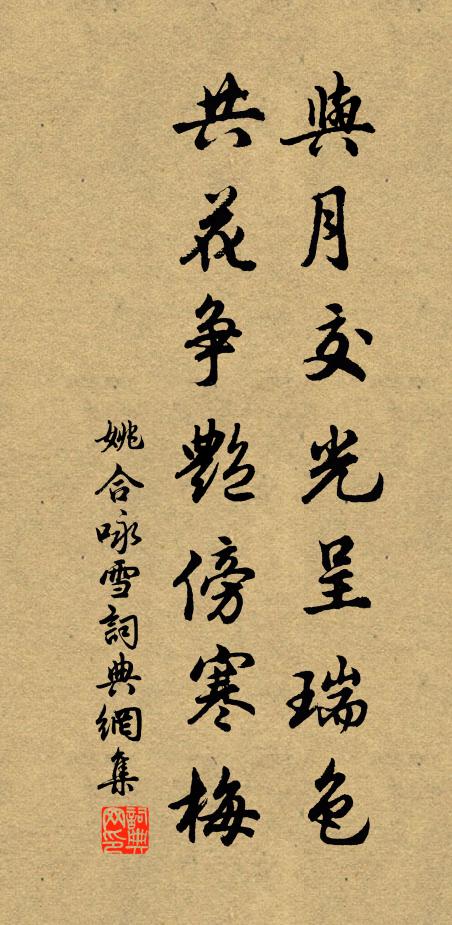 與月交光呈瑞色
共花争艷傍寒梅
姚合咏雪詞典網集
詞典網印